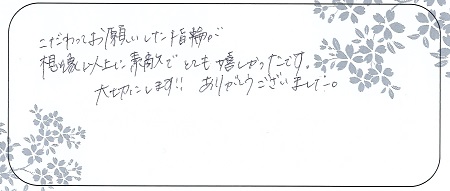 こだわってお願いした指輪が
想像以上に素敵でとても嬉しかったです。
大切にします!! ありがとうございました。